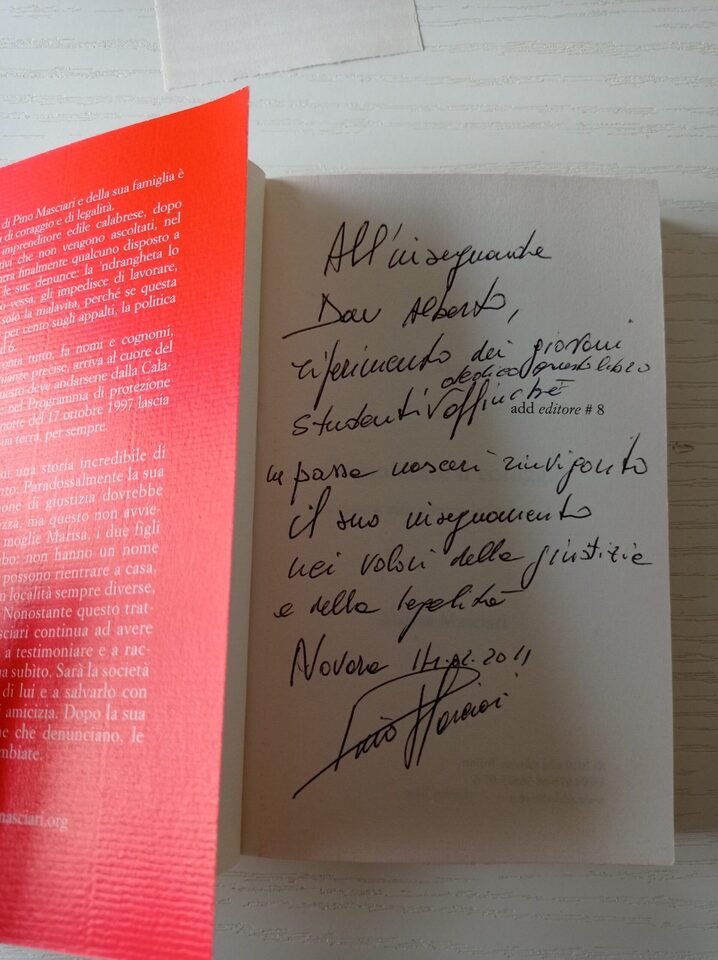 di Pino Masciari e della sua famiglia è
di coraggio e di legalità.
imprenditore edile calabrese, dopo
tivi che non vengono ascoltati, nel
finalmente qualcuno disposto a
le sue denunce: la 'ndrangheta lo
vessa, gli impedisce di lavorare,
solo la malavita, perché se questa
per cento sugli appalti, la politica
6.
tutto, fa nomi e cognomi,
precise, arriva al cuore del
questo deve andarsene dalla Cala-
e nel Programma di protezione
notte del 17 ottobre 1997 lascia
sua terra, per sempre.
una storia incredibile di
Paradossalmente la sua
di giustizia dovrebbe
ma questo non avvie-
moglie Marisa, i due figli
non hanno un nome
possono rientrare a casa,
in località sempre diverse,
Nonostante questo trat-
continua ad avere
a testimoniare e a rac-
subìto. Sarà la società
di lui e a salvarlo con
amicizia. Dopo la sua
che denunciano, le
masciari.org
All'insegnante
Don Alberto,
riferimento dei giovani
studenti dedico questo libro affinché
add editore # 8
possa rinvigorito
il suo insegnamento
nei valori della giustizia
e della legalità
Novara 11.02.2011
Pino Masciari